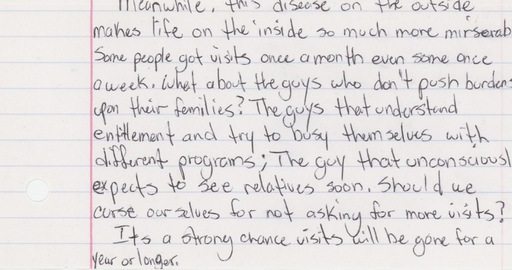 Meanwhile, this disease on the outside
makes life on the inside so much more mirserab
Some people got visits once a month even some once
a week. What about the guys who don't push burdens
upon their families? The guys that understand
entitlement and try to busy themselves with
different programs; The guy that unconsciousl
expects to see relatives soon. Should we
curse ourselves for not asking for more visits?
Its a strong chance visits will be gone for a
year or longer.